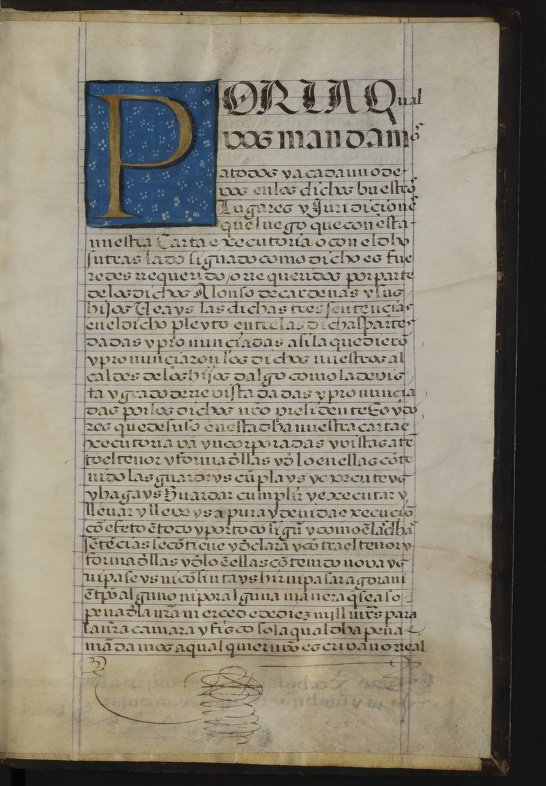 PORLA Qual
vos mandamos
a todos y a cada uno de
vos en los dichos buestros
Lugares y Juridiciones
que luego que con esta
nuestra Carta executoria o con el dho
su traslado signado como dicho es fue
redes rrequerido / o rrequeridos por parte
de los dichos Alonso de cardenas y sus
hijos Veays las dichas tres sentencias
en el dicho pleyto entre las dichas partes
dadas y pronunciadas asi la que diero
y pronunciaron los dichos nuestros al
caldes de los hijos dalgo como la de vis
ta y grado de rrevista dadas y pronuncia
das por los dichos nro presidente E oydo
res que de suso en esta dha nuestra carta e
xecutoria va yncorporadas y vistas ate
to el tenor y forma dllas y d lo en ellas cōte
nido las guardeys cūplays y executeys
y hagays Guardar cumplir y executar y
llevar y lleveys a pura y devida execucio
cō efeto ē todo y por todo sigū y como ē las dhas
sētēcias se cōtiene y declara y cōtra el tenor y
forma dllas y d lo ē ellas cōtenido no vays
ni paseys ni cōsintays hir ni pasar agora ni
ē tpo alguno ni por alguna manera q sea so
pena d la nra merced e de diez mill mrs para
la nra camara y fisco so la qual dha pena
mādamos a qual quier nro escrivano real